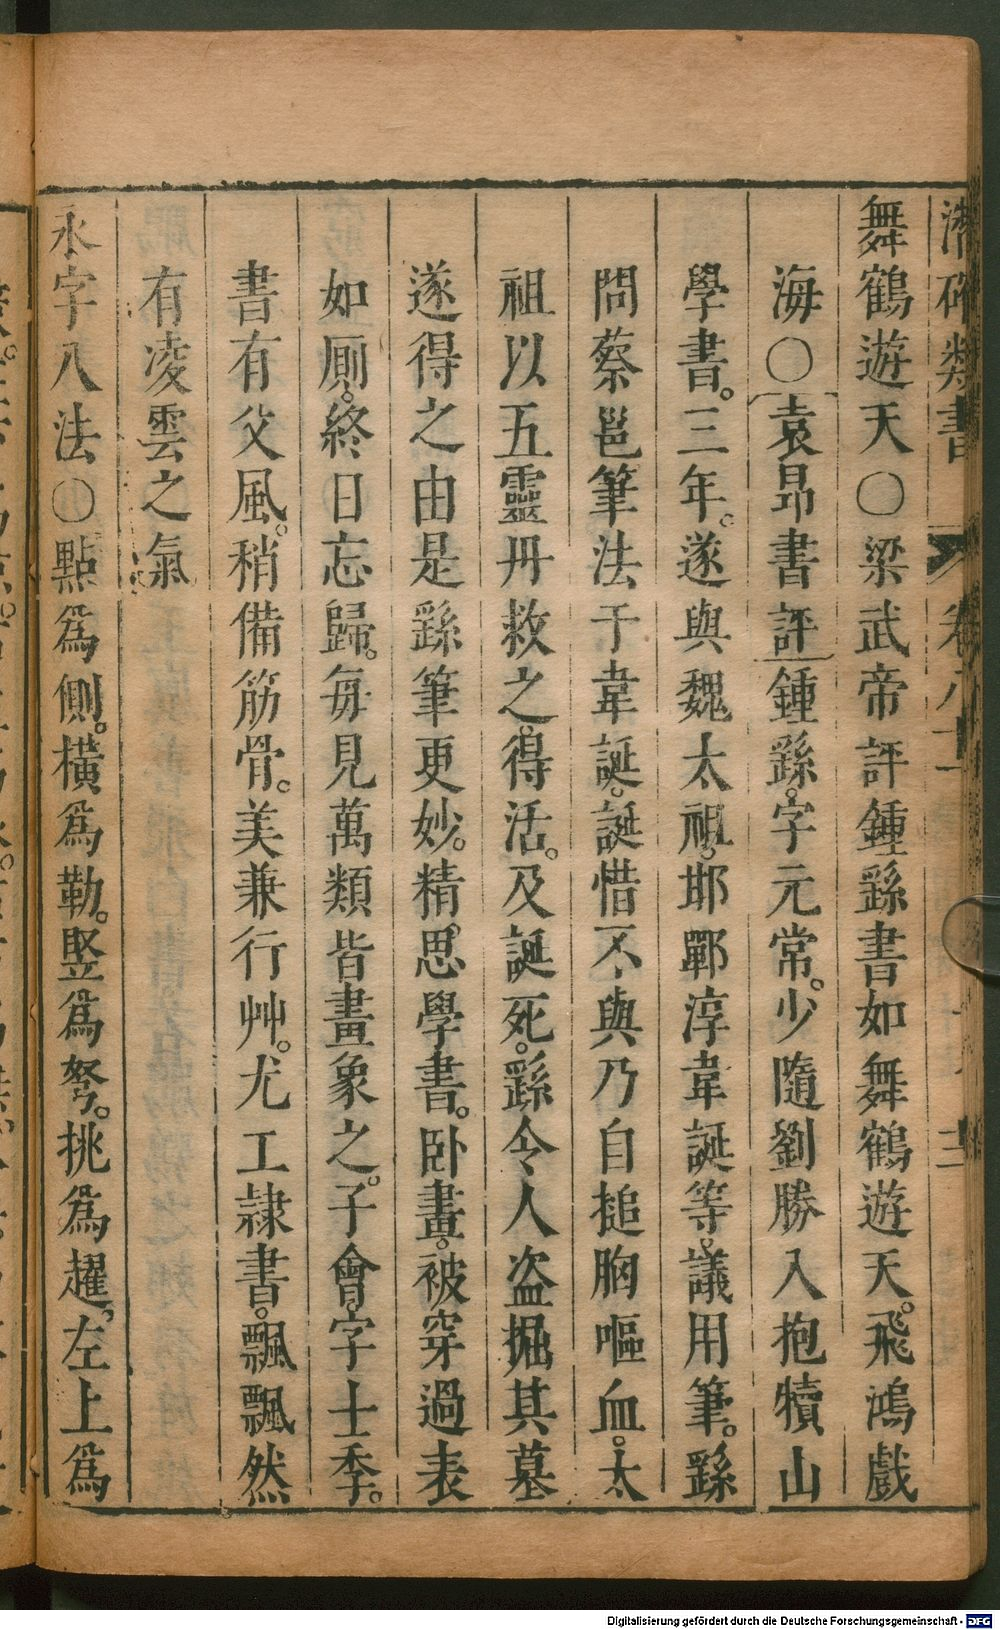 潛確類書 卷八十 三
舞鶴遊天〇梁武帝評鍾繇書如舞鶴遊天。飛鴻戲
海〇袁昂書評鍾繇。字元常。少隨劉勝入抱犢山
學書。三年。遂與魏太祖。邯鄲淳韋誕等。議用筆。繇
問蔡邕筆法于韋誕。誕惜不與乃自搥胸嘔血。太
祖以五靈丹救之。得活。及誕死。繇令人盗掘其墓
遂得之由是繇筆更妙。精思學書。卧畫。被穿過表
如厠。終日忘歸。每見萬類皆畫象之。子會。字士季。
書有父風。稍備筋骨。美兼行艸。尤工隷書。飄飄然
有凌雲之氣
永字八法〇點爲側。橫爲勒。竪爲弩。挑爲趯。左上爲
Digitalisierung gefördert durch die Deutsche Forschungsgemeinschaft - DFG